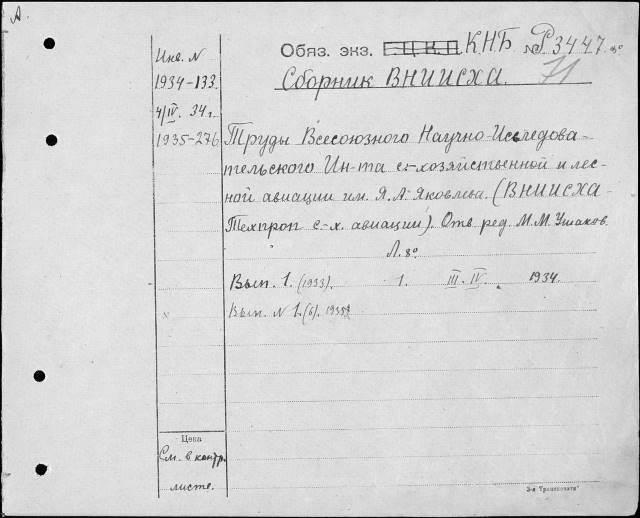 А
Обяз. экз. Г.Ц.К.П. К.Н.Б № Р3447. 8°
71
Сборник ВНИИСХА.
Инв. N
1934-133.
4/IV. 34 г.
1935-276
Труды Всесоюзного Научно-Исследова-
тельского Ин-та с.-хозяйственной и лес-
ной авиации им. Я. А. Яковлева. (ВНИИСХА-
Техпроп с.-х. авиации). Отв. ред. М. М. Ушаков.
Л. 8°
Вып. 1. (1933). 1. III. IV. 1934.
Вып. № 1. (6). 1935
Цена
См. в контр.
листе.
3-я "Транспечати"